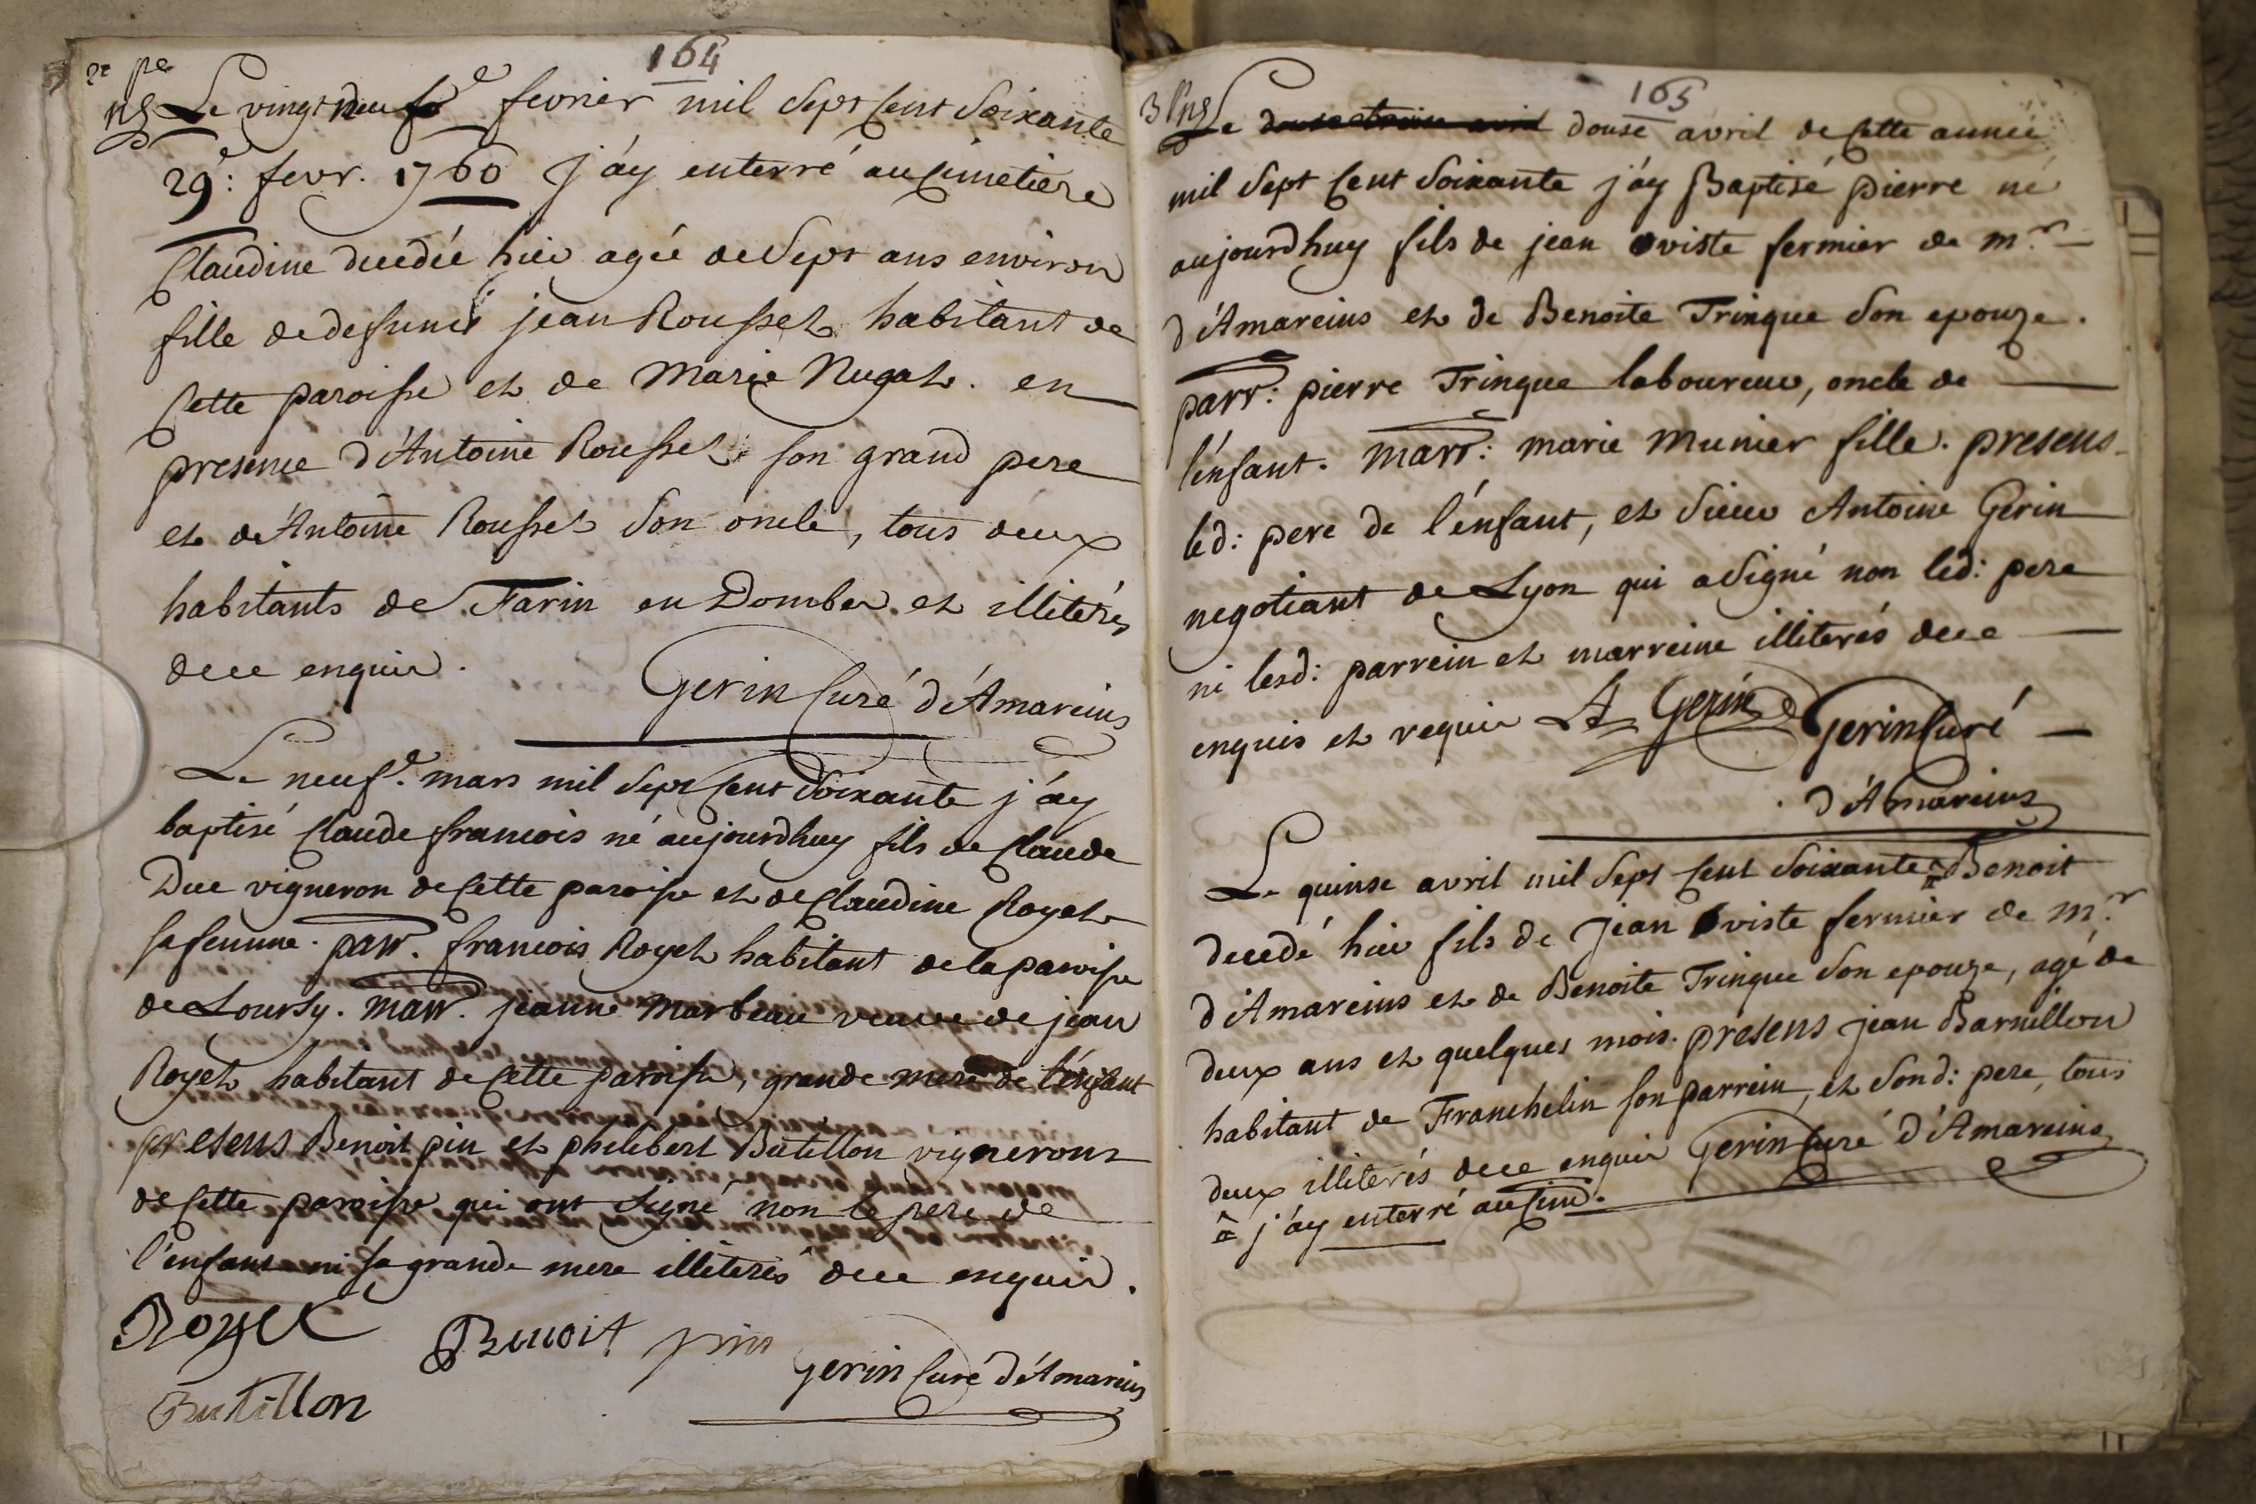 164
Le vingt neufe fevrier mil sept cent soixante
29e: fevr. 1760 j'áy enterré au cimetiere
Claudine decedée hier agée de sept ans environ
fille de defunct jean Rousset habitant de
cette paroisse et de Marie Nugat. en
presence d'Antoine Rousset son grand pere
et d'Antoine Rousset son oncle, tous deux
habitants de Farin en Dombes et illiterés
de ce enquis.
Gerin Curé d'Amareins
Le neufe. mars mil sept cent soixante j'áy
baptisé Claude francois né aujourdhuy fils de Claude
Duc vigneron de cette paroisse et de Claudine Royet
sa femme. parr. francois Royet habitant de la paroisse
de Loursy. marr. jeanne Marbeau veuve de jean
Royet habitant de cette paroisse, grande mere de l'énfant
presens Benoit pin et philibert Butillon vignerons
de cette paroisse qui ont signé non le pere de
l'énfant ni sa grande mere illiterés de ce enquis.
Royet
Benoit pin
Butillon
Gerin Curé d'Amareins
165
Le douse avril de cette année
mil sept cent soixante j'áy Baptisé pierre né
aujourdhuy fils de jean oviste fermier de mr.
d'Amareins et de Benoite Trinque son epouze.
parr: pierre Trinque laboureur, oncle de
l'énfant. marr: marie Munier fille. presens
led: pere de l'énfant, et sieur Antoine Gerin
negotiant de Lyon qui a signé non led: pere
ni lesd: parrein et marreine illiterés de ce
enquis et requis A Gerin Gerin Curé
d'Amareins
Le quinse avril mil sept cent soixante Benoit
decedé hier fils de Jean oviste fermier de mr.
d'Amareins et de Benoite Trinque son epouze, agé de
deux ans et quelques mois. presens jean Barnillon
habitant de Franchelin son parrein, et sond: pere, tous
deux illiterés de ce enquis Gerin Curé d'Amareins
j'áy enterré au cim.